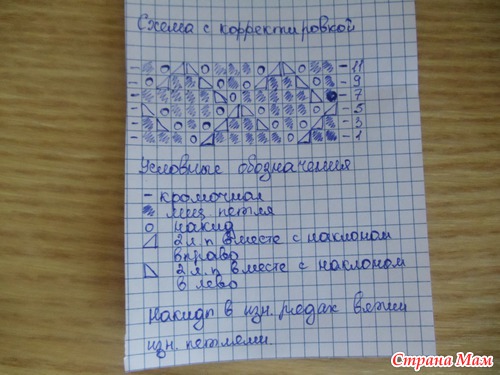 Схема с корректировкой
11
9
7
5
3
1
Условные обозначения
- кромочная
лиц петля
накид
2 л.п вместе с наклоном
вправо
2 л.п вместе с наклоном
в лево
Накиды в изн. рядах вяжем
изн. петлями
Страна Мам